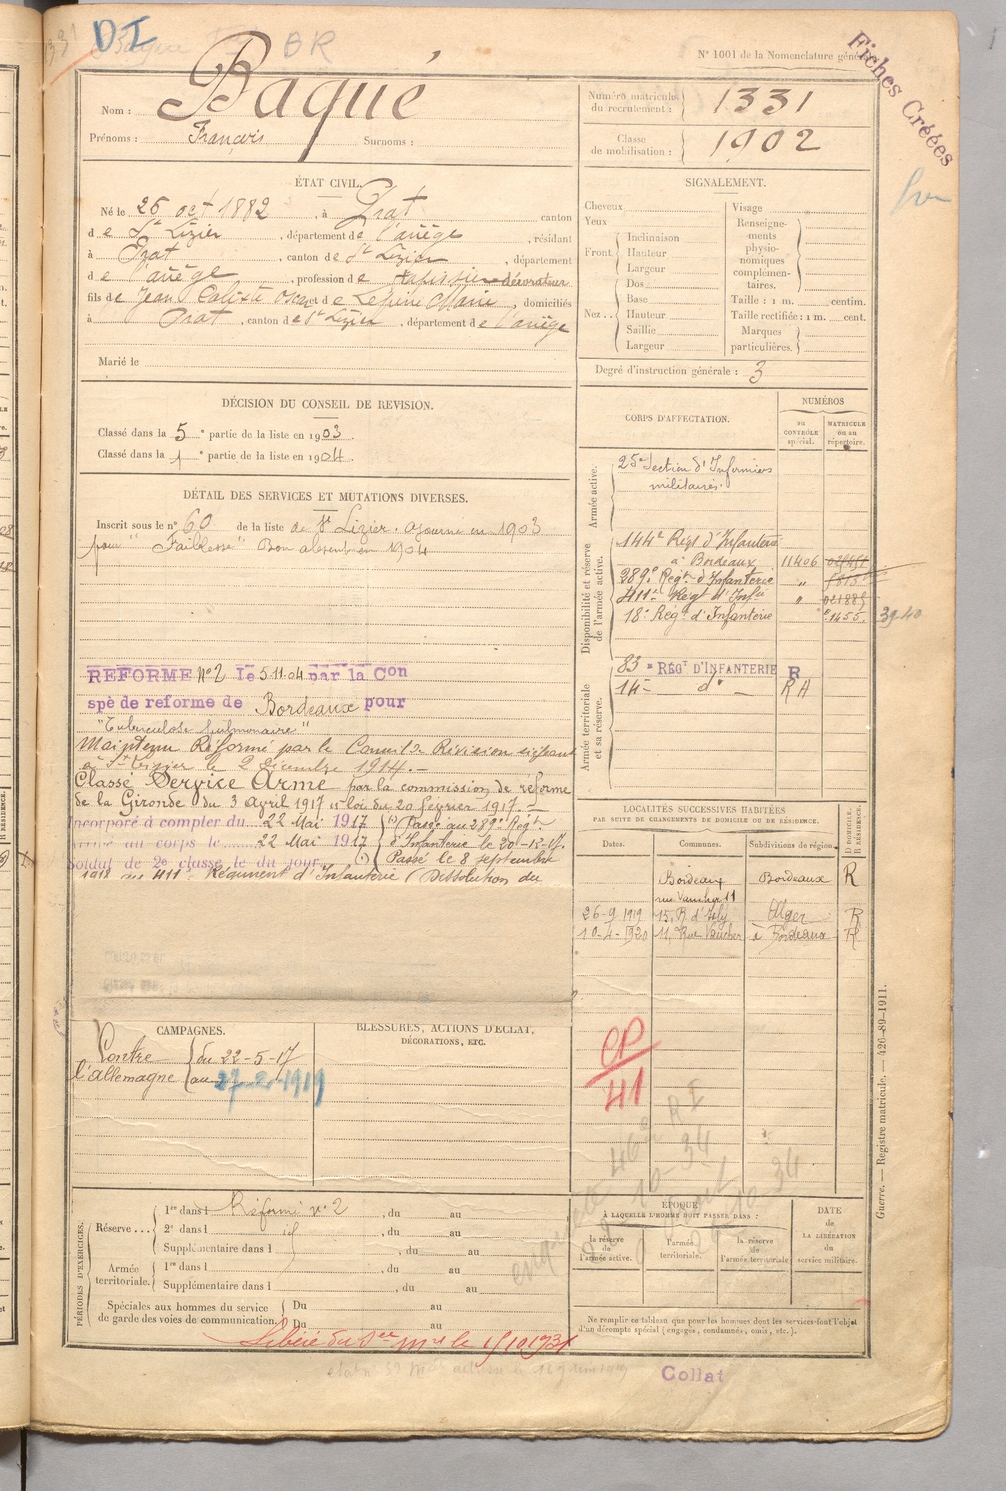 D I
BR
N° 1001 de la Nomenclature
Fiches Créées
Nom : Baqué
Prénoms : François Surnoms :
Numéro matricule du recrutement : 1331
Classe de mobilisation : 1902
ÉTAT CIVIL.
Né le 26 oct 1882, à Prat canton
de St Lizier, département de l'ariège, résidant
à Prat, canton de St Lizier, département
de l'ariège, profession de tapissier décorateur
fils de Jean Calixte Oscar et de Marie, domiciliés
à Prat, canton de St Lizier, département de l'ariège
Marié le
SIGNALEMENT.
Cheveux
Yeux
Front
Inclinaison
Hauteur
Largeur
Nez
Dos
Base
Hauteur
Saillie
Largeur
Visage
Renseignements physionomiques complémentaires.
Taille : 1 m. centim.
Taille rectifiée : 1 m. cent.
Marques particulières.
Degré d'instruction générale : 3
DÉCISION DU CONSEIL DE REVISION.
Classé dans la 5e partie de la liste en 1903.
Classé dans la 1e partie de la liste en 1904.
DÉTAIL DES SERVICES ET MUTATIONS DIVERSES.
Inscrit sous le n° 60 de la liste de St Lizier. Ajourné en 1903
pour "Faiblesse" Bon absent en 1904
REFORME N°2 le 5.11.04 par la Con
spé de reforme de Bordeaux pour
"Tuberculose pulmonaire"
Maintenu Réformé par le Conseil de Révision siégeant
à St Lizier le 2 décembre 1914.
Classé Service Armé par la commission de réforme
de la Gironde du 3 avril 1917 loi du 20 février 1917.
Incorporé à compter du 22 Mai 1917
Arrivé au corps le 22 Mai 1917
Soldat de 2e classe le dit jour
(1) Passé au 289e Régt
d'Infanterie le
Passé le 8 septembre
1918 au 411e Régiment d'Infanterie (Dissolution du
CORPS D'AFFECTATION.
NUMÉROS
au CONTRÔLE spécial.
MATRICULE ou au répertoire.
Armée active.
25e Section d'Infirmiers
militaires.
Disponibilité et réserve de l'armée active.
144e Regt d'Infanterie
à Bordeaux 11406
289e Regt d'Infanterie "
411e Regt d'Infie "
18e Regt d'Infanterie 1455.
39-40
Armée territoriale et sa réserve.
83e REGT D'INFANTERIE R
14e do RA
LOCALITÉS SUCCESSIVES HABITÉES
PAR SUITE DE CHANGEMENTS DE DOMICILE OU DE RÉSIDENCE.
Dates. Communes. Subdivisions de région.
D DOMICILE. R RÉSIDENCE.
Bordeaux Bordeaux R
rue Vaucher 11
26-9 1919 15, R. d'Isly Alger R
10-4-1920 11, Rue Vaucher à Bordeaux R
CP
41
CAMPAGNES.
Contre l'allemagne
du 22-5-17
au 27-2-1919
BLESSURES, ACTIONS D'ÉCLAT,
DÉCORATIONS, ETC.
PÉRIODES D'EXERCICES.
Réserve...
1re dans l Réformé n° 2, du au
2e dans l, du au
Supplémentaire dans l, du au
Armée territoriale.
1re dans l, du au
Supplémentaire dans l, du au
Spéciales aux hommes du service
de garde des voies de communication.
Du au
Du au
ÉPOQUE
À LAQUELLE L'HOMME DOIT PASSER DANS :
la réserve de l'armée active.
l'armée territoriale.
la réserve de l'armée territoriale
DATE DE LA LIBÉRATION du service militaire.
Ne remplir ce tableau que pour les hommes dont les services font l'objet
d'un décompte spécial (engagés, condamnés, omis, etc.).
Libéré du Sce Mre le 15 10 1931
Collat
Guerre. — Registre matricule. — 426-89-1911.